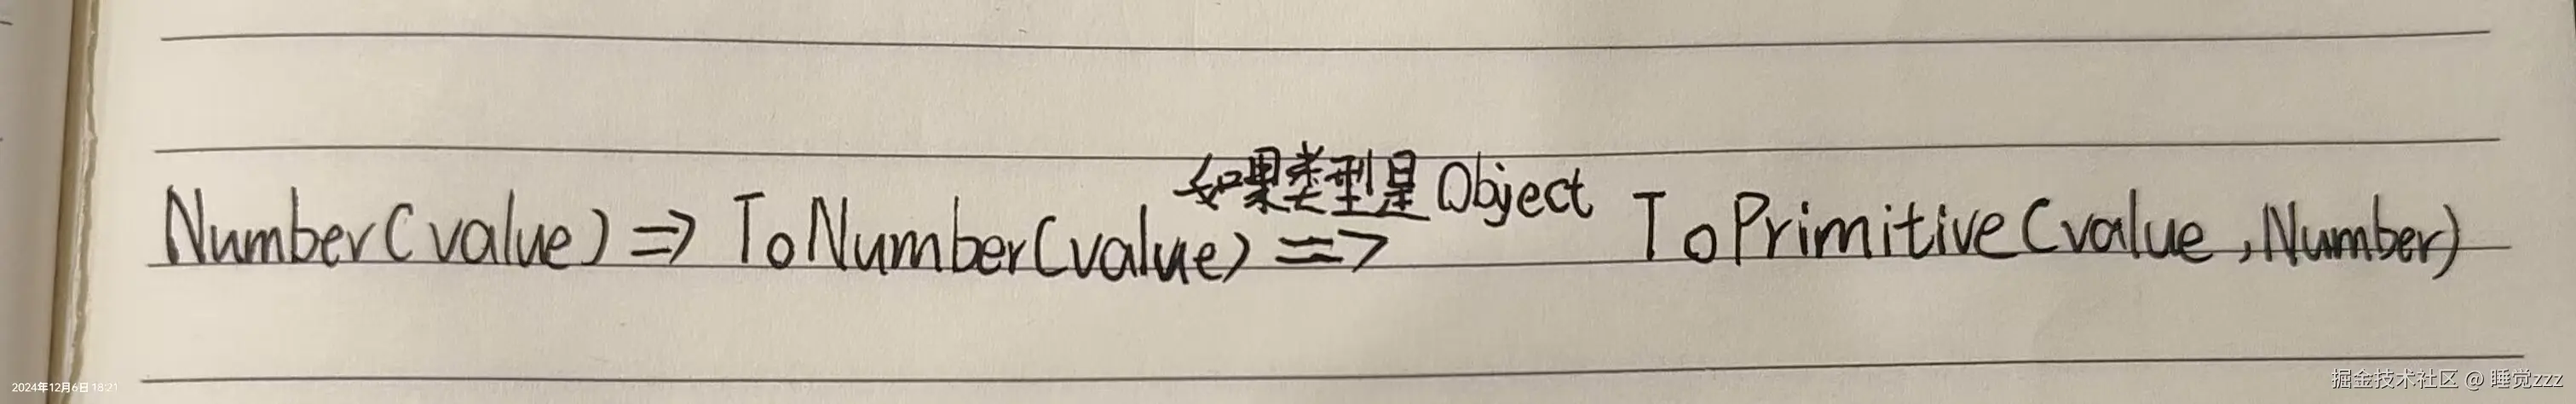 如果类型是Object
Number(value) => ToNumber(value) => ToPrimitive(value,Number)
2024年12月6日 18:21
掘金技术社区 @ 睡觉zzz